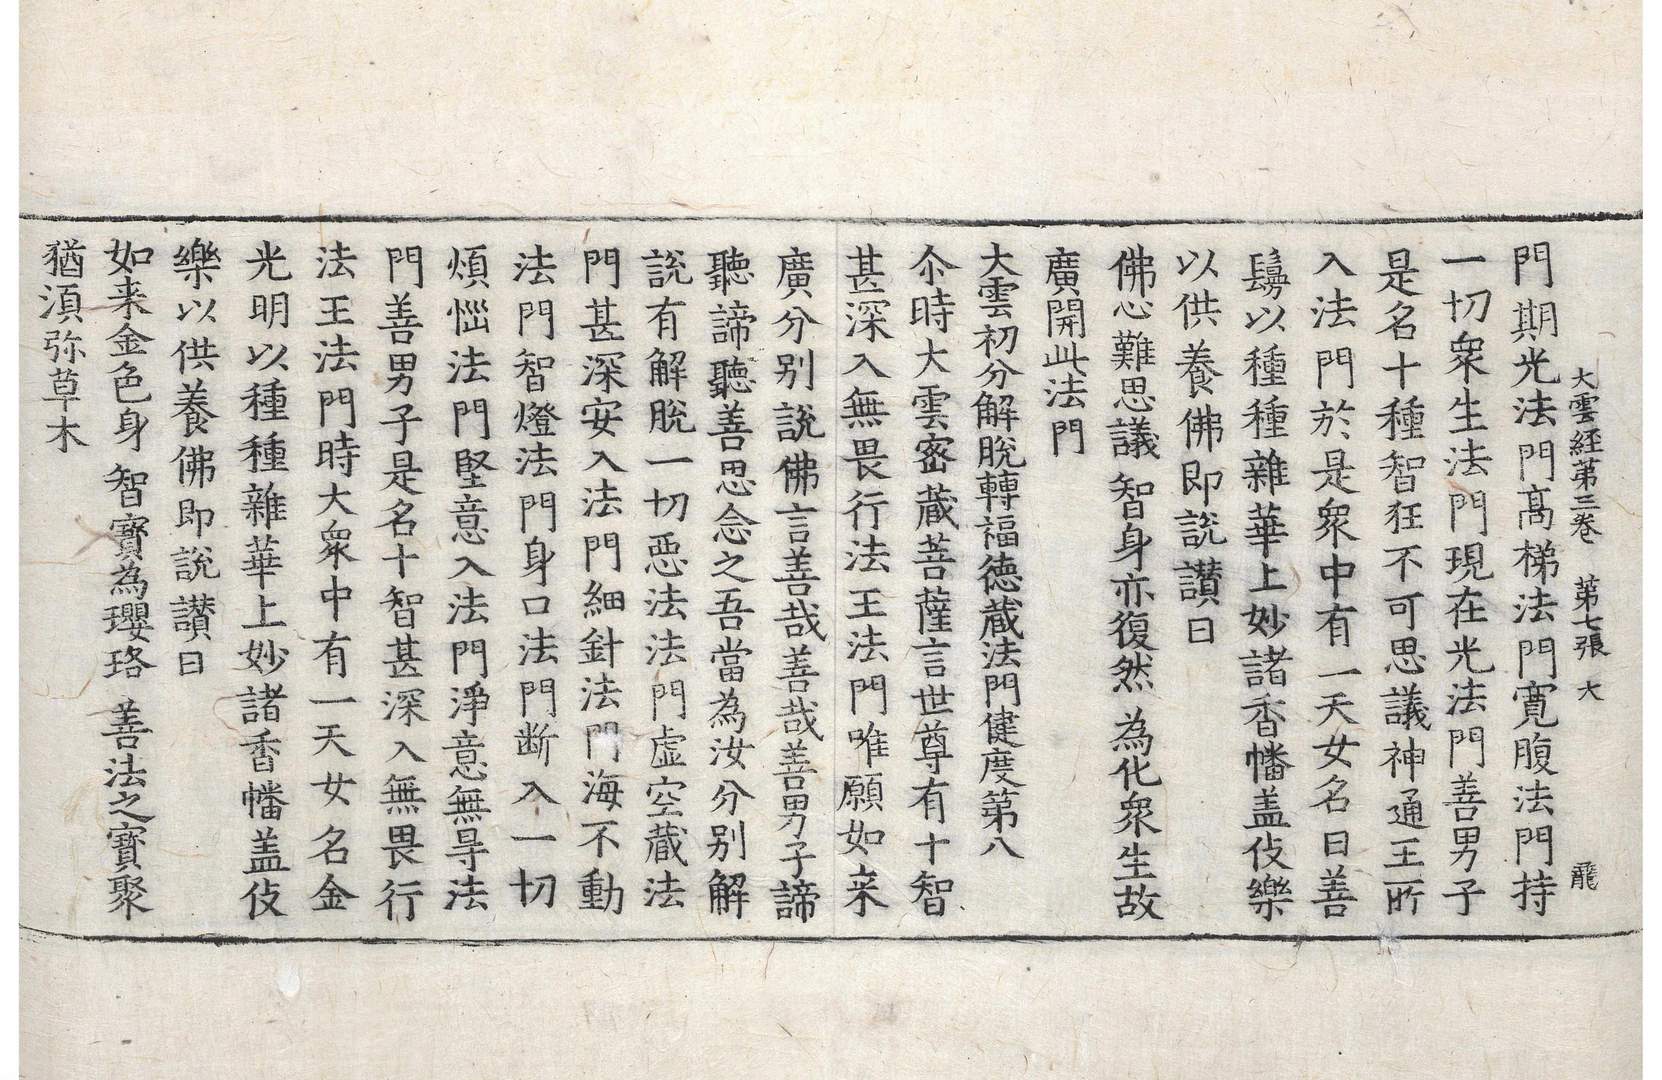 大雲経第三卷 第七張 大 龍
門期光法門髙梯法門寛腹法門持
一切衆生法門現在光法門善男子
是名十種智狂不可思議神通王所
入法門於是衆中有一天女名曰善
鬘以種種雜華上妙諸香幡盖伎樂
以供養佛即說讃曰
佛心難思議 智身亦復然 為化衆生故
廣開此法門
大雲初分解脫轉福德藏法門健度第八
尒時大雲密藏菩薩言世尊有十智
甚深入無畏行法王法門唯願如来
廣分别說佛言善哉善哉善男子諦
聽諦聽善思念之吾當為汝分别解
說有解脫一切惡法法門虛空藏法
門甚深安入法門細針法門海不動
法門智燈法門身口法門断入一切
煩惱法門堅意入法門淨意無㝵法
門善男子是名十智甚深入無畏行
法王法門時大衆中有一天女名金
光明以種種雜華上妙諸香幡盖伎
樂以供養佛即說讃曰
如来金色身 智寳為瓔珞 善法之寳聚
猶湏弥草木